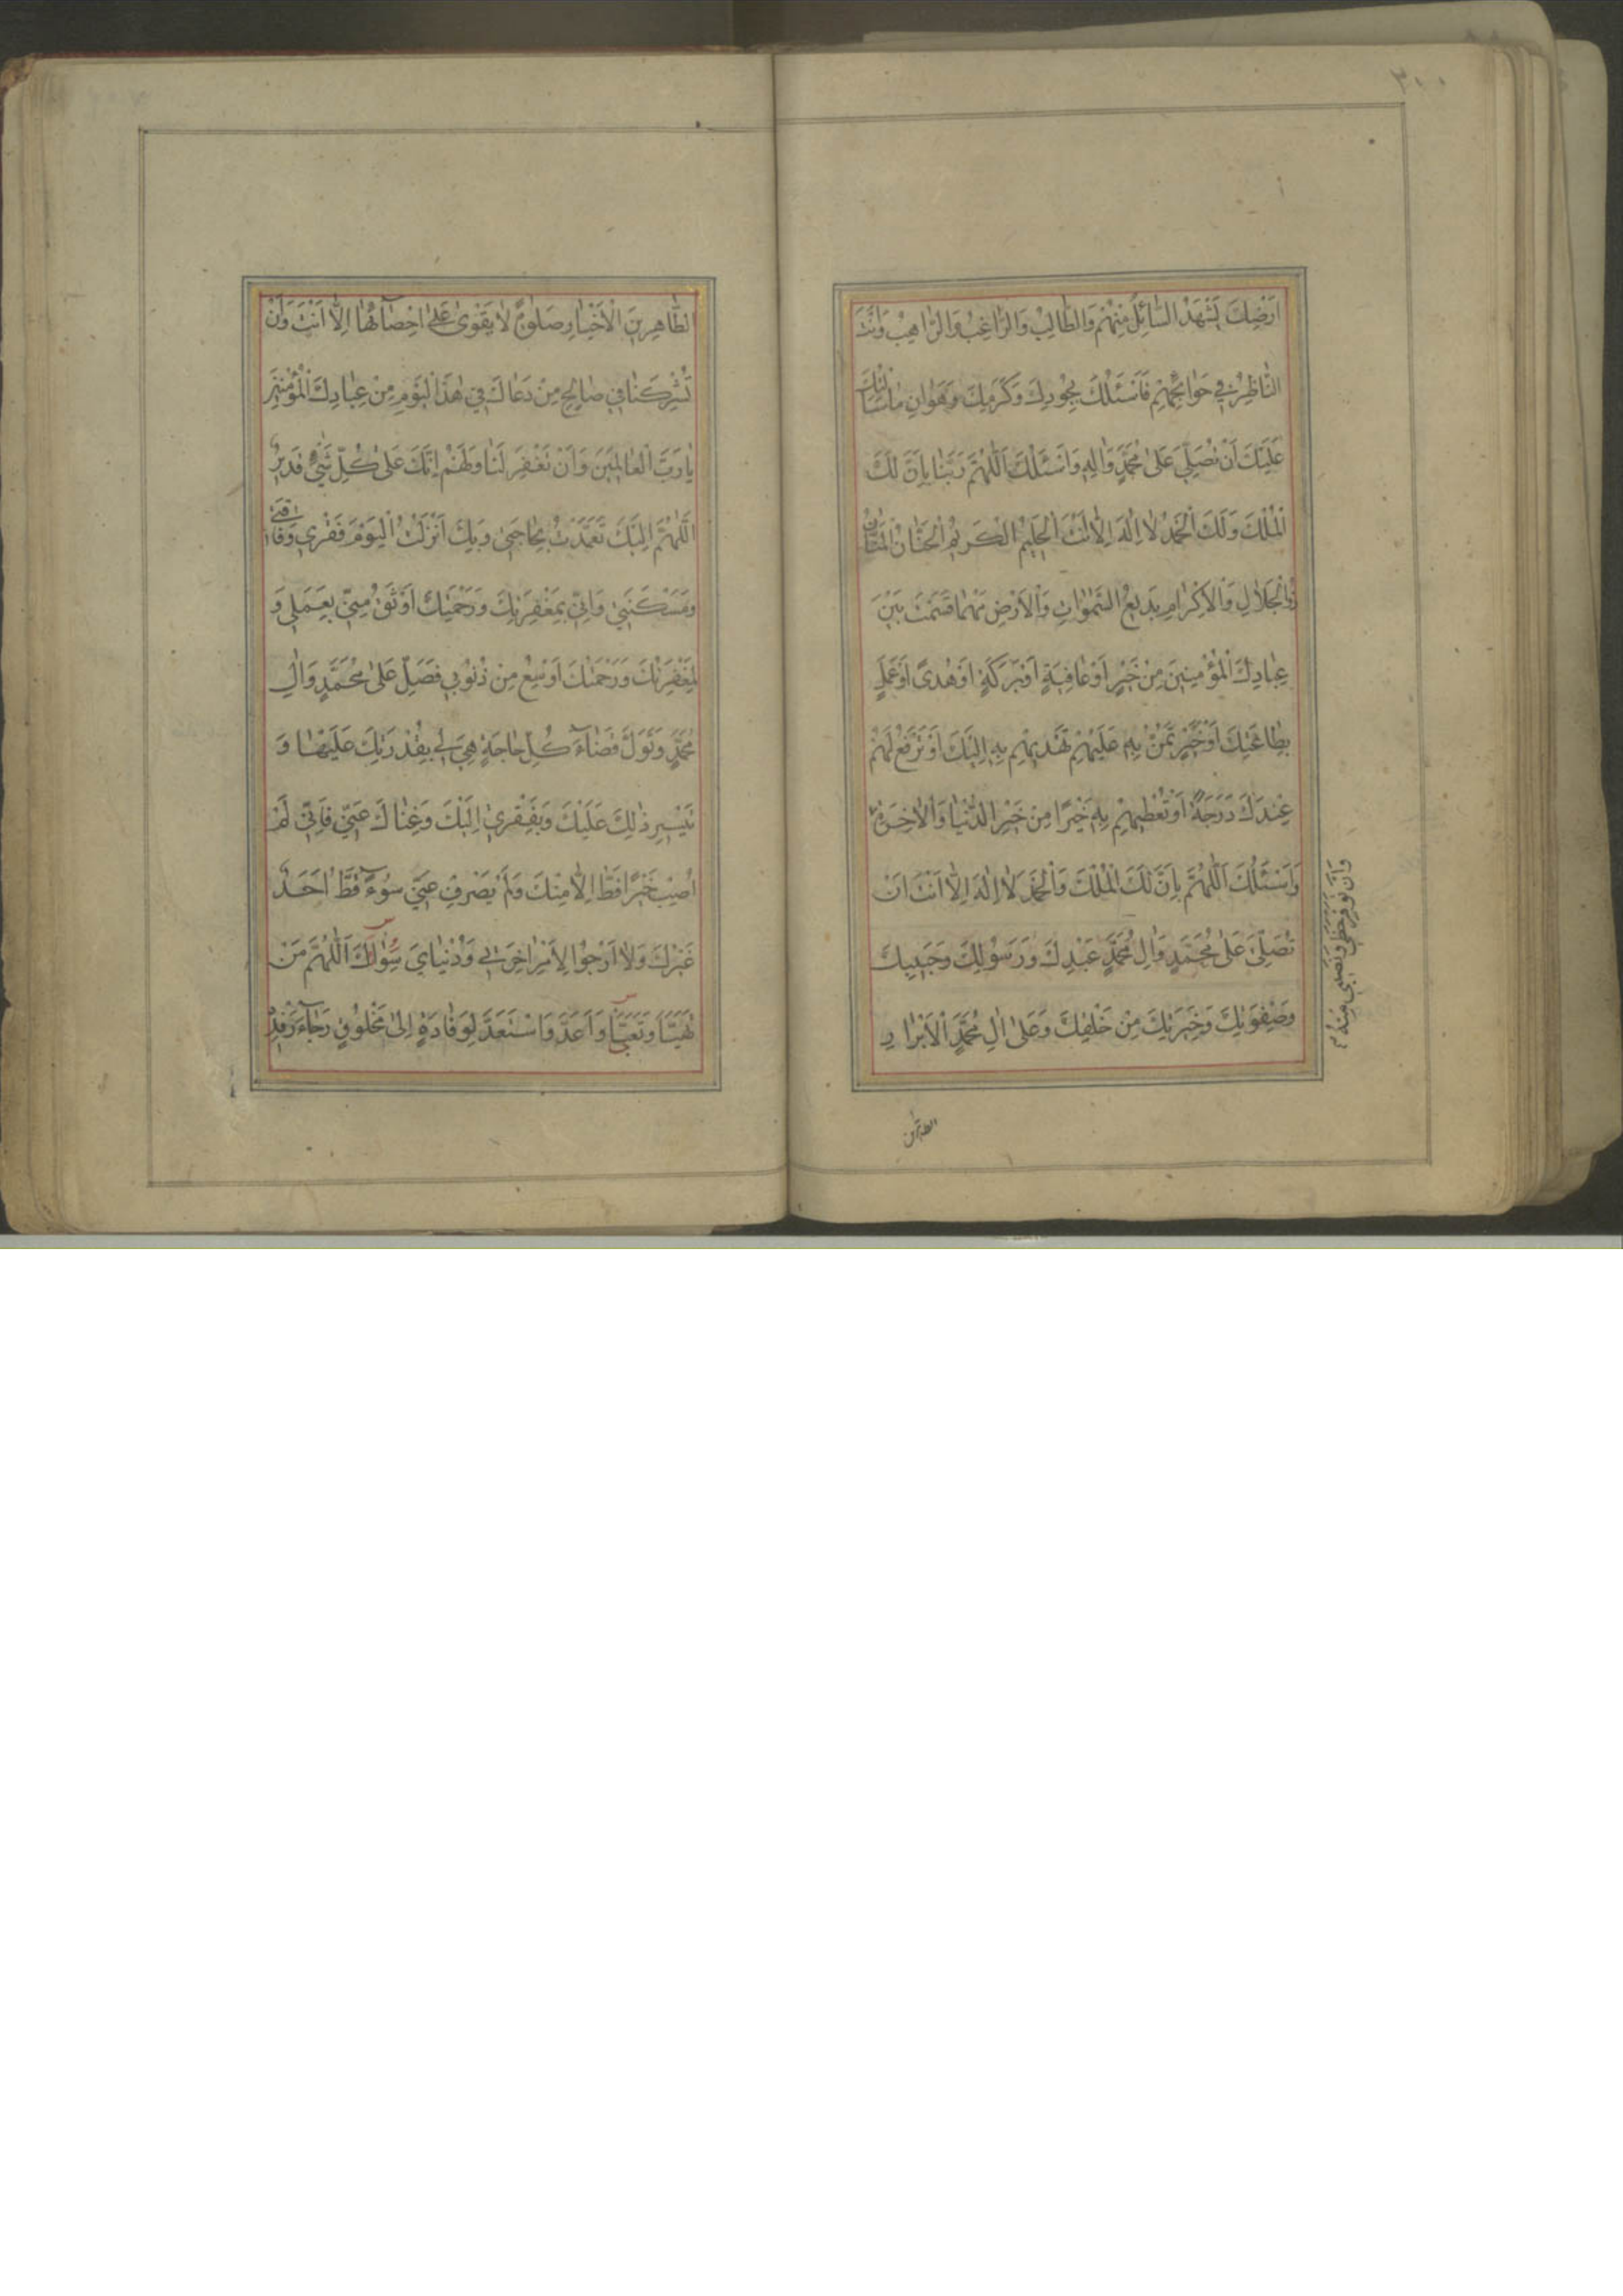 ٣٠٠
اَرْضِكَ يَشْهَدُ السّٰائِلُ مِنْهُمْ وَالطّٰالِبُ وَالرّٰاغِبُ وَالرّٰاهِبُ وَاَنْتَ
النّٰاظِرُ فِي حَوٰائِجِهِمْ فَاَسْئَلُكَ بِجُودِكَ وَكَرَمِكَ وَهَوٰانِ مٰا سَاَلْتُكَ
عَلَيْكَ اَنْ تُصَلِّيَ عَلىٰ مُحَمَّدٍ وَاٰلِهِ وَاَسْئَلُكَ اَللّٰهُمَّ رَبَّنٰا بِاَنَّ لَكَ
الْمُلْكَ وَلَكَ الْحَمْدُ لٰا اِلٰهَ اِلّٰا اَنْتَ الْحَلِيمُ الْكَرِيمُ الْحَنّٰانُ الْمَنّٰانُ
ذُو الْجَلٰالِ وَالْاِكْرٰامِ بَدِيعُ السَّمٰوٰاتِ وَالْاَرْضِ مَهْمٰا قَسَمْتَ بَيْنَ
عِبٰادِكَ الْمُؤْمِنِينَ مِنْ خَيْرٍ اَوْ عٰافِيَةٍ اَوْ بَرَكَةٍ اَوْ هُدىً اَوْ عَمَلٍ
بِطٰاعَتِكَ اَوْ خَيْرٍ تَمُنُّ بِهِ عَلَيْهِمْ تَهْدِيهِمْ بِهِ اِلَيْكَ اَوْ تَرْفَعُ لَهُمْ
عِنْدَكَ دَرَجَةً اَوْ تُعْطِيهِمْ بِهِ خَيْرًا مِنْ خَيْرِ الدُّنْيٰا وَالْاٰخِرَةِ
وَاَسْئَلُكَ اَللّٰهُمَّ بِاَنَّ لَكَ الْمُلْكَ وَالْحَمْدَ لٰا اِلٰهَ اِلّٰا اَنْتَ اَنْ
تُصَلِّيَ عَلىٰ مُحَمَّدٍ وَاٰلِ مُحَمَّدٍ عَبْدِكَ وَرَسُولِكَ وَحَبِيبِكَ
وَصِفْوَتِكَ وَخِيَرَتِكَ مِنْ خَلْقِكَ وَعَلىٰ اٰلِ مُحَمَّدٍ الْاَبْرٰارِ
وَاَنْ تُوَفِّرَ حَظِّي وَنَصِيبِي مِنْهُ
الطاهرين
الطّٰاهِرِينَ الْاَخْيٰارِ صَلٰوةً لٰا يَقْوىٰ عَلىٰ اِحْصٰائِهٰا اِلّٰا اَنْتَ وَاَنْ
تُشْرِكَنٰا فِي صٰالِحِ مَنْ دَعٰاكَ فِي هٰذَا الْيَوْمِ مِنْ عِبٰادِكَ الْمُؤْمِنِينَ
يٰا رَبَّ الْعٰالَمِينَ وَاَنْ تَغْفِرَ لَنٰا وَلَهُمْ اِنَّكَ عَلىٰ كُلِّ شَيْءٍ قَدِيرٌ
اَللّٰهُمَّ اِلَيْكَ تَعَمَّدْتُ بِحٰاجَتِي وَبِكَ اَنْزَلْتُ الْيَوْمَ فَقْرِي وَفٰاقَتِي
وَمَسْكَنَتِي وَاِنِّي بِمَغْفِرَتِكَ وَرَحْمَتِكَ اَوْثَقُ مِنِّي بِعَمَلِي وَ
لَمَغْفِرَتُكَ وَرَحْمَتُكَ اَوْسَعُ مِنْ ذُنُوبِي فَصَلِّ عَلىٰ مُحَمَّدٍ وَاٰلِ
مُحَمَّدٍ وَتَوَلَّ قَضٰاءَ كُلِّ حٰاجَةٍ هِيَ لِي بِقُدْرَتِكَ عَلَيْهٰا وَ
تَيْسِيرِ ذٰلِكَ عَلَيْكَ وَبِفَقْرِي اِلَيْكَ وَغِنٰاكَ عَنِّي فَاِنِّي لَمْ
اُصِبْ خَيْرًا قَطُّ اِلّٰا مِنْكَ وَلَمْ يَصْرِفْ عَنِّي سُوءً قَطُّ اَحَدٌ
غَيْرُكَ وَلٰا اَرْجُوا لِاَمْرِ اٰخِرَتِي وَدُنْيٰايَ سِوٰاكَ اَللّٰهُمَّ مَنْ
تَهَيَّأَ وَتَعَبَّأَ وَاَعَدَّ وَاسْتَعَدَّ لِوِفٰادَةٍ اِلىٰ مَخْلُوقٍ رَجٰاءَ رِفْدِهِ